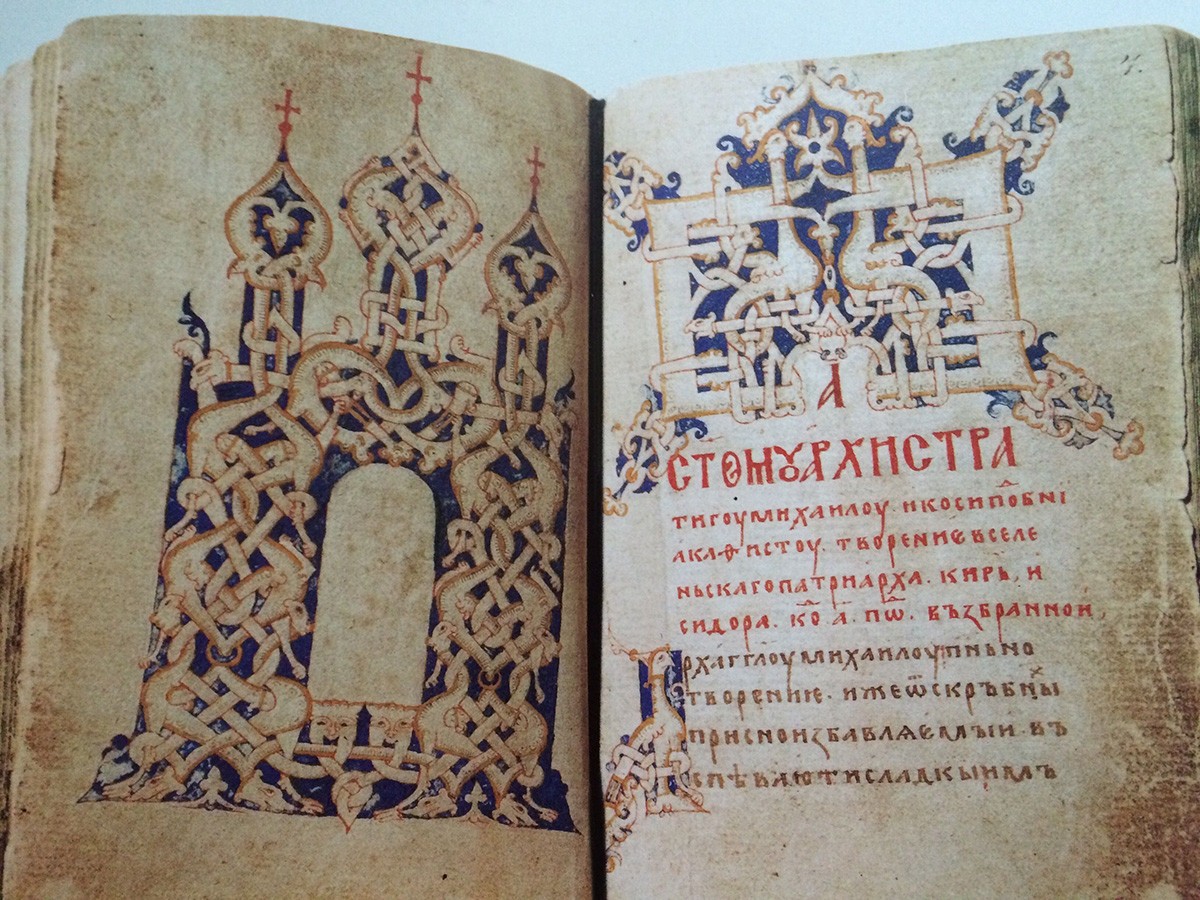 4.
А
СТОМꙊАРХИСТРА
ТИГОУМИХАИЛОУ. ИКОСИПОⷣБНІ
АКАѲИСТОУ. ТВОРЕНИЄВСЕЛЕ
НЬСКАГОПАТРИАРХА. КИРЬ, И
СИДОРА. КОⷣ. А҃. ПѠⷣ. ВЪЗБРАННОИ,
РХАГГЛОУМИХАИЛОУПѢНЬНО
ТВОРЕНИЄ. ИЖЕѾСКРЪБНЫⷯ
ПРИСНОИЗБАВЛЯЄМЫИ. ВЪ
СПѢВАЮТИСЛАДКЫИМЪ